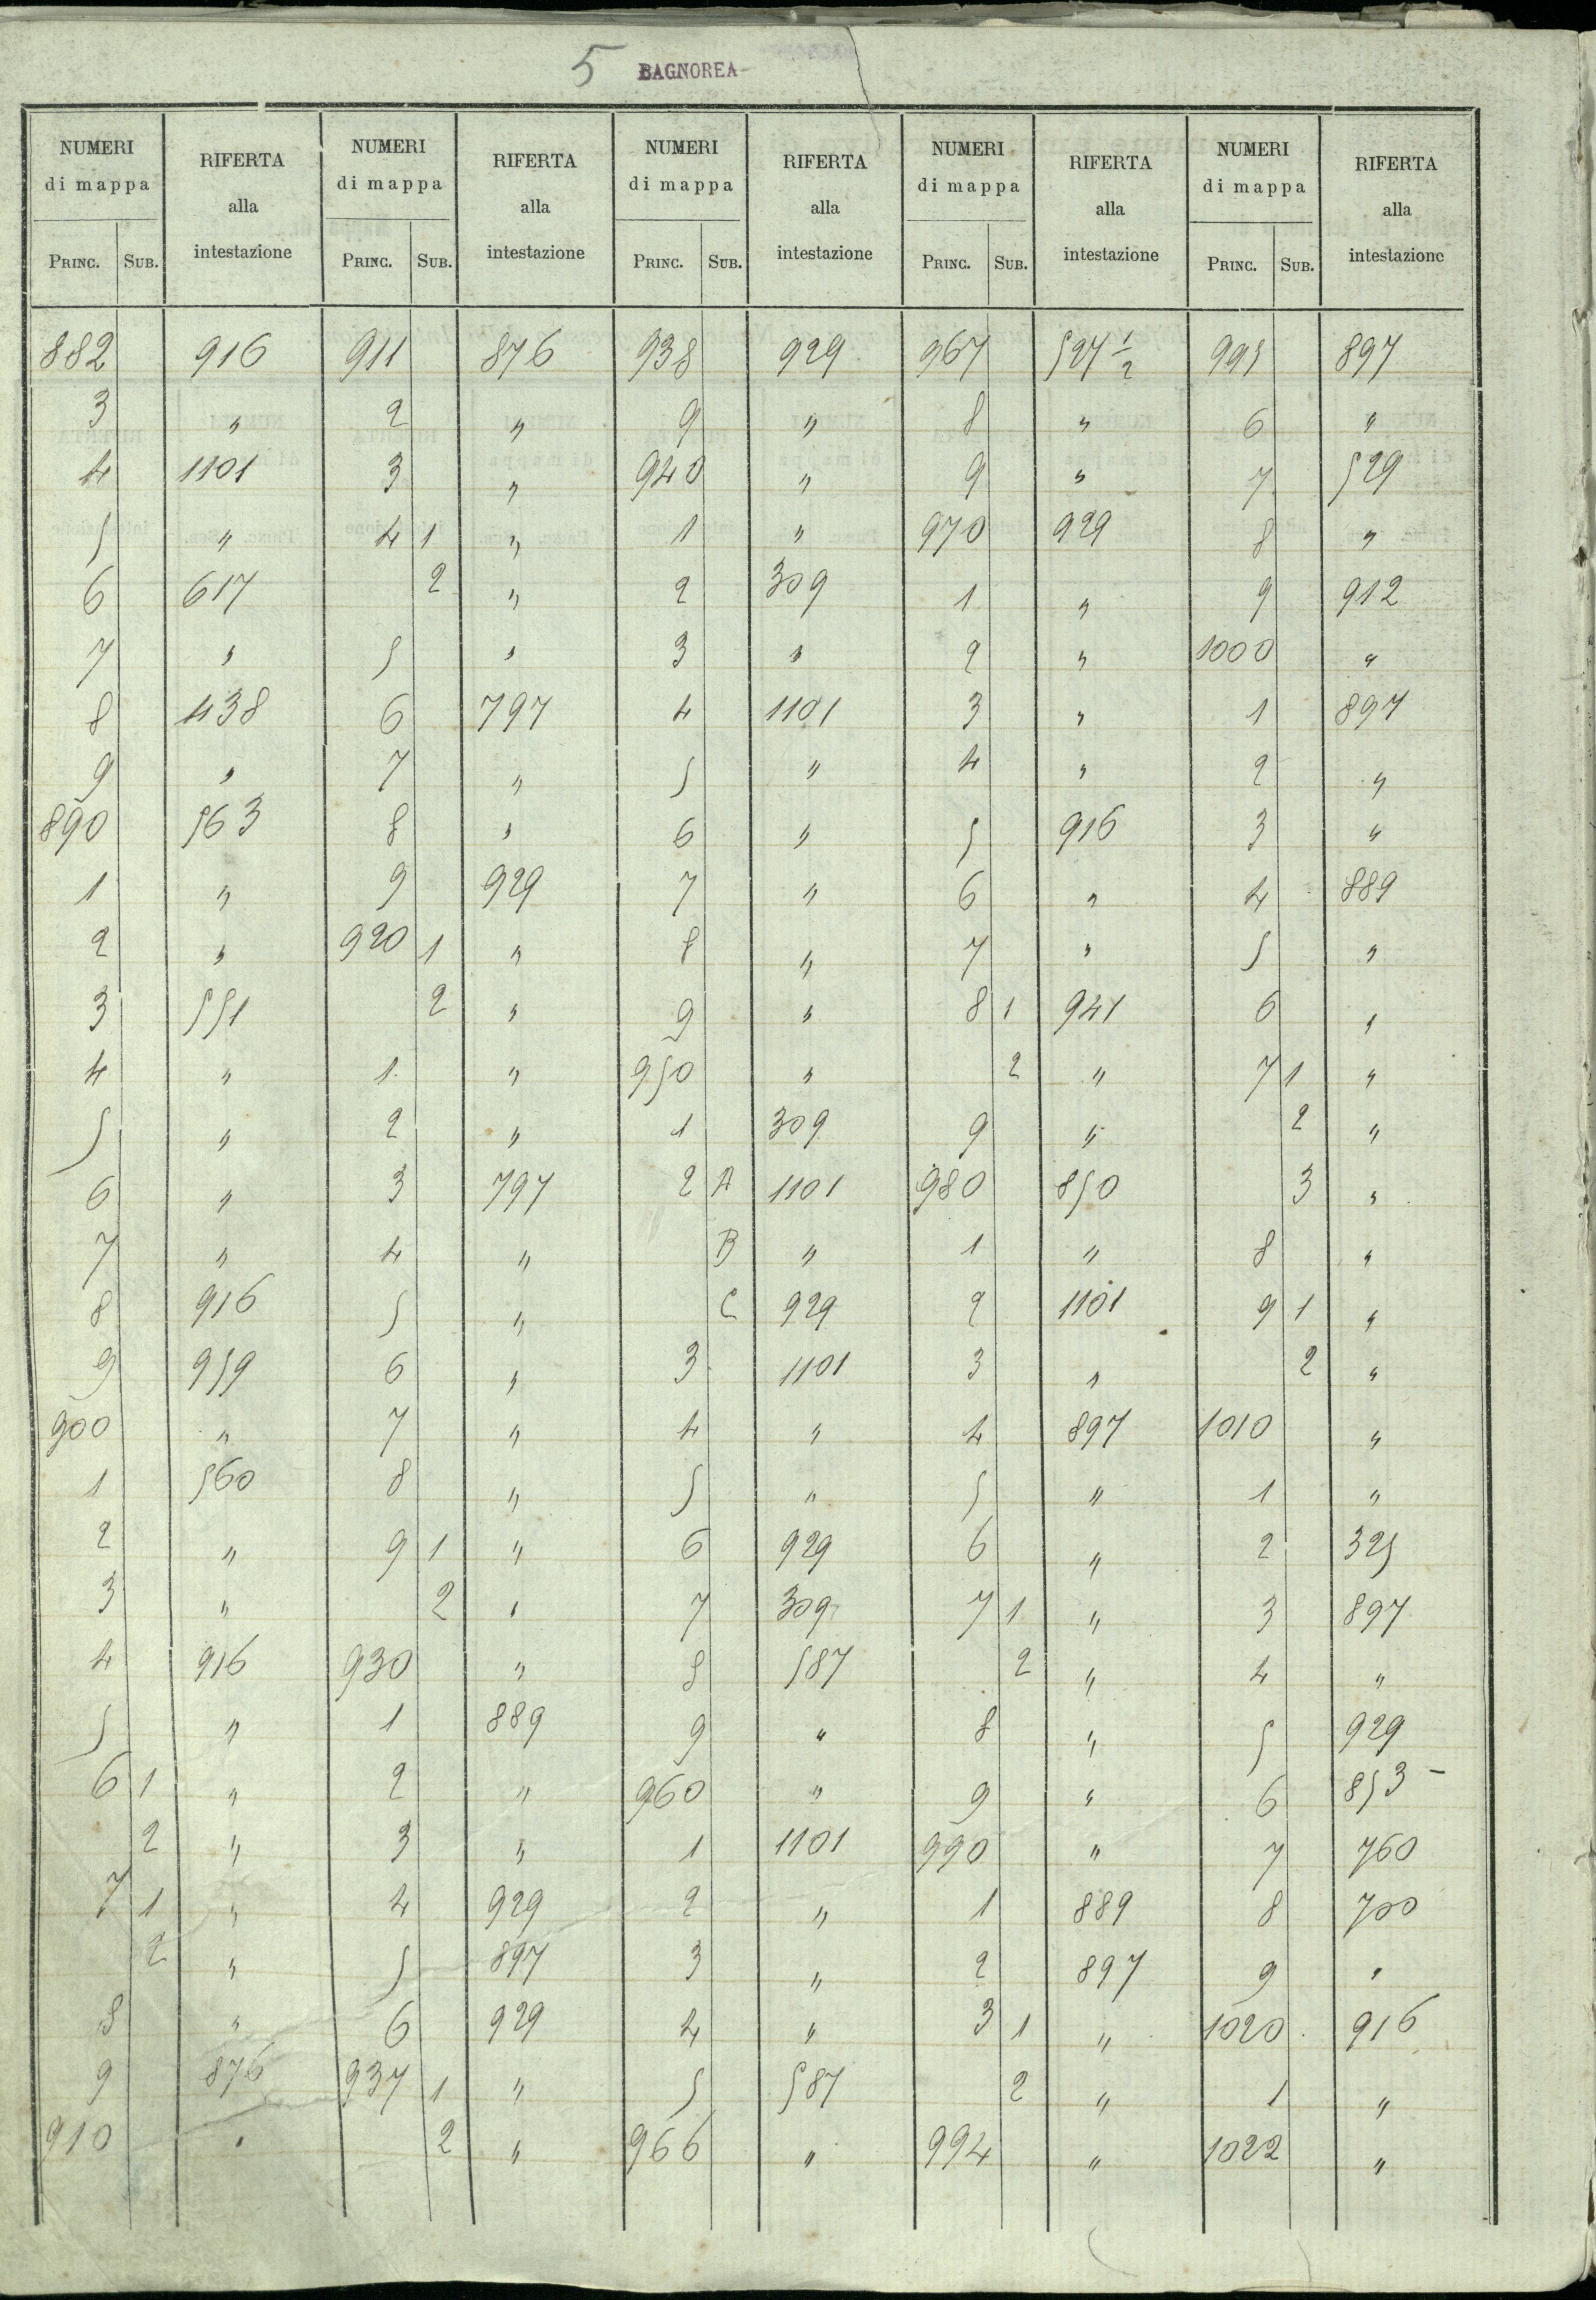 5 BAGNOREA
NUMERI di mappa RIFERTA alla intestazione NUMERI di mappa RIFERTA alla intestazione NUMERI di mappa RIFERTA alla intestazione NUMERI di mappa RIFERTA alla intestazione NUMERI di mappa RIFERTA alla intestazione
PRINC. SUB. PRINC. SUB. PRINC. SUB. PRINC. SUB. PRINC. SUB.
882 916 911 876 938 929 967 527 1/2 995 897
3 " 2 " 9 " 8 " 6 "
4 1101 3 " 940 " 9 " 7 529
5 " 4 1 " 1 " 970 929 8 "
6 617 2 " 2 309 1 " 9 912
7 " 5 " 3 " 2 " 1000 "
8 438 6 797 4 1101 3 " 1 897
9 " 7 " 5 " 4 " 2 "
890 563 8 " 6 " 5 916 3 "
1 " 9 929 7 " 6 " 4 889
2 " 920 1 " 8 " 7 " 5 "
3 551 2 " 9 " 8 1 941 6 "
4 " 1 " 950 " 2 " 7 1 "
5 " 2 " 1 309 9 " 2 "
6 " 3 797 2 A 1101 980 850 3 "
7 " 4 " B " 1 " 8 "
8 916 5 " C 929 2 1101 9 1 "
9 959 6 " 3 1101 3 " 2 "
900 " 7 " 4 " 4 897 1010 "
1 560 8 " 5 " 5 " 1 "
2 " 9 1 " 6 929 6 " 2 325
3 " 2 " 7 309 7 1 " 3 897
4 916 930 " 8 587 2 " 4 "
5 " 1 889 9 " 8 " 5 929
6 1 " 2 " 960 " 9 " 6 853 -
2 " 3 " 1 1101 990 " 7 760
7 1 " 4 929 2 " 1 889 8 700
2 " 5 897 3 " 2 897 9 "
8 " 6 929 4 " 3 1 " 1020 916
9 876 937 1 " 5 587 2 " 1 "
910 " 2 " 966 " 994 " 1022 "